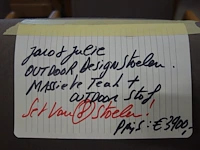 jaro & julie
OUTDOOR Design Stoelen.
MASSieve Teak +
OUTDOOR Stof
Set van 8 Stoelen!
PRijs: € 3900,